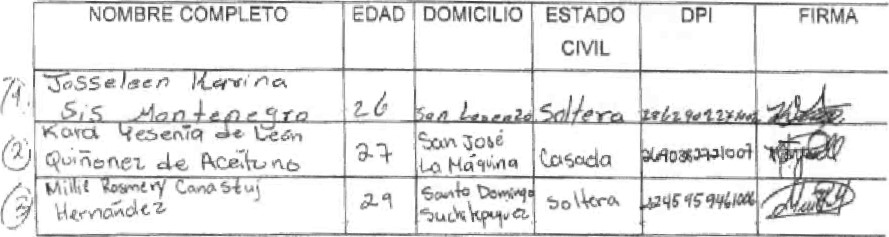 NOMBRE COMPLETO EDAD DOMICILIO ESTADO CIVIL DPI FIRMA
1. Josseleen Karina
Sis Montenegro 26 San Lorenzo Soltera
2 Kara Yesenia de León
Quiñonez de Aceituno 27 San José
La Máquina Casada 2690382721007
3 Millie Rosmery Canastuj
Hernández 29 Santo Domingo
Suchitepequez Soltera 3245959461006